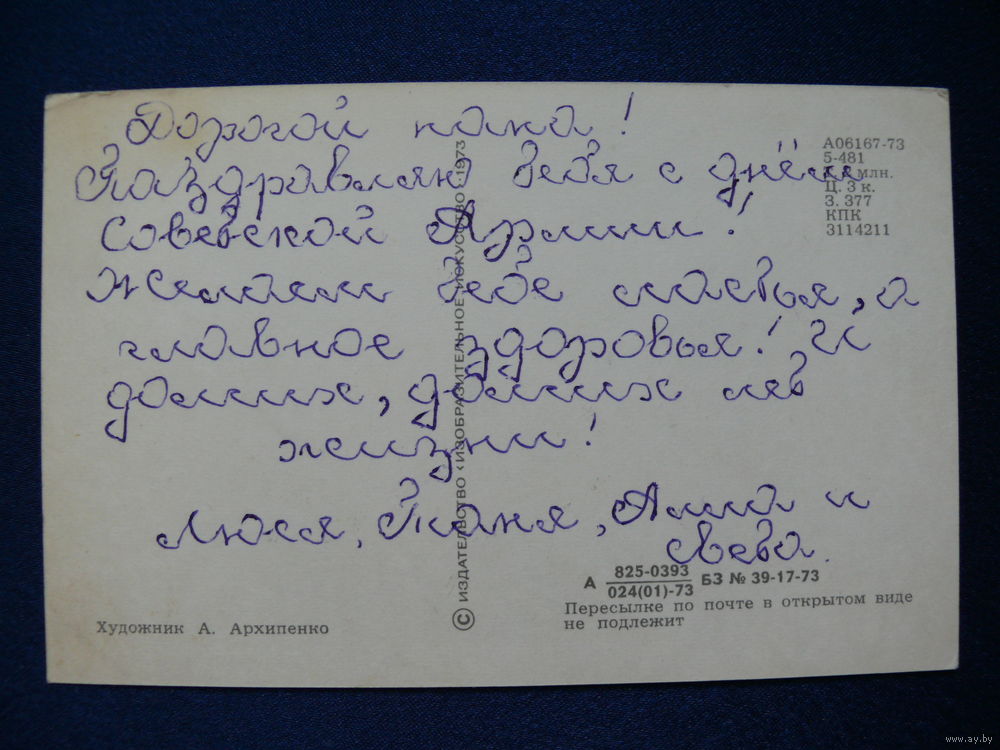 Дорогой папа!
Паздравляю тебя с днём
Советской Армии!
Желаем тебе счастья, а
главное здоровья! И
долгих, долгих лет
жизни!
Люся, Таня, Алла и
Света.
А06167-73
5-481
млн.
Ц. 3 к.
З. 377
КПК
3114211
© ИЗДАТЕЛЬСТВО «ИЗОБРАЗИТЕЛЬНОЕ ИСКУССТВО». 1973
А 825-0393 БЗ № 39-17-73
024(01)-73
Пересылке по почте в открытом виде
не подлежит
Художник А. Архипенко
www.ay.by